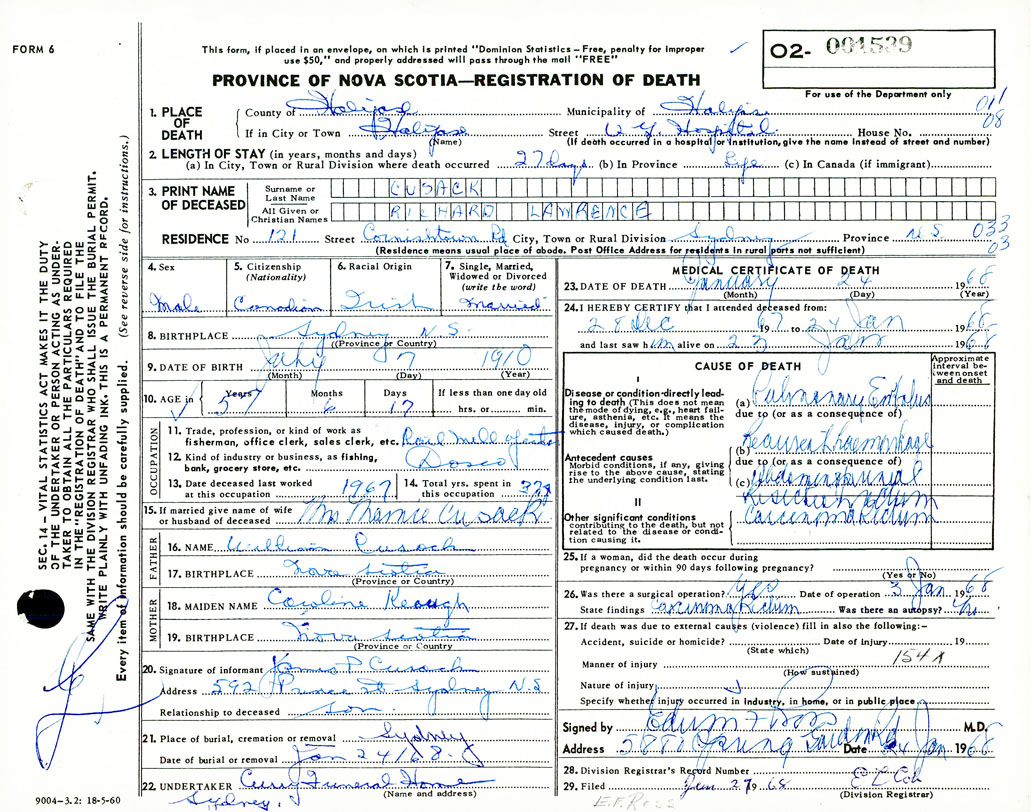 FORM 6
This form, if placed in an envelope, on which is printed "Dominion Statistics – Free, penalty for improper
use $50," and properly addressed will pass through the mail "FREE"
PROVINCE OF NOVA SCOTIA—REGISTRATION OF DEATH
O2- 001539
For use of the Department only
SEC. 14– VITAL STATISTICS ACT MAKES IT THE DUTY
OF THE UNDERTAKER OR PERSON ACTING AS UNDER-
TAKER TO OBTAIN ALL THE PARTICULARS REQUIRED
IN THE "REGISTRATION OF DEATH" AND TO FILE THE
SAME WITH THE DIVISION REGISTRAR WHO SHALL ISSUE THE BURIAL PERMIT.
WRITE PLAINLY WITH UNFADING INK. THIS IS A PERMANENT RECORD.
Every item of information should be carefully supplied. (See reverse side for instructions.)
1. PLACE OF DEATH
County of Halifax Municipality of Halifax 011
If in City or Town Halifax Street V.G. Hospital House No. 08
(Name) (If death occurred in a hospital or institution, give the name instead of street and number)
2. LENGTH OF STAY (in years, months and days)
(a) In City, Town or Rural Division where death occurred 27 days (b) In Province Life (c) In Canada (if immigrant)
3. PRINT NAME OF DECEASED
Surname or Last Name CUSACK
All Given or Christian Names RICHARD LAWRENCE
RESIDENCE No 121 Street Cornishtown Rd City, Town or Rural Division Sydney Province N.S. 033
03
(Residence means usual place of abode. Post Office Address for residents in rural parts not sufficient)
4. Sex Male
5. Citizenship (Nationality) Canadian
6. Racial Origin Irish
7. Single, Married, Widowed or Divorced (write the word) Married
8. BIRTHPLACE Sydney N.S.
(Province or Country)
9. DATE OF BIRTH July 7 1910
(Month) (Day) (Year)
10. AGE in Years 57 Months 6 Days 17 If less than one day old
hrs. or min.
OCCUPATION
11. Trade, profession, or kind of work as
fisherman, office clerk, sales clerk, etc. Rail Mill
12. Kind of industry or business, as fishing,
bank, grocery store, etc. Dosco
13. Date deceased last worked
at this occupation 1967
14. Total yrs. spent in
this occupation 37
15. If married give name of wife
or husband of deceased Mrs Mamie Cusack
FATHER
16. NAME William Cusack
17. BIRTHPLACE Nova Scotia
(Province or Country)
MOTHER
18. MAIDEN NAME Caroline Keough
19. BIRTHPLACE Nova Scotia
(Province or Country)
20. Signature of informant James P Cusack
Address 592 Prince St. Sydney N.S
Relationship to deceased son
21. Place of burial, cremation or removal Sydney
Date of burial or removal Jan 24/68
22. UNDERTAKER Curry Funeral Home
(Name and address)
Sydney.
9004–3.2: 18-5-60
MEDICAL CERTIFICATE OF DEATH
23. DATE OF DEATH January 24 1968
(Month) (Day) (Year)
24. I HEREBY CERTIFY that I attended deceased from:
28 Dec 1967 to 24 Jan 1968
and last saw him alive on 23 Jan 1968
CAUSE OF DEATH
Approximate interval between onset and death
I
Disease or condition directly lead-
ing to death (This does not mean
the mode of dying, e.g., heart fail-
ure, asthenia, etc. It means the
disease, injury, or complication
which caused death.)
(a) Pulmonary Embolus
due to (or as a consequence of)
Antecedent causes
Morbid conditions, if any, giving
rise to the above cause, stating
the underlying condition last.
(b)
due to (or as a consequence of)
(c) Abdominoperineal
Resection rectum
II
Other significant conditions
contributing to the death, but not
related to the disease or condi-
tion causing it.
Carcinoma Rectum
25. If a woman, did the death occur during
pregnancy or within 90 days following pregnancy?
(Yes or No)
26. Was there a surgical operation? Yes Date of operation 3 Jan 1968
State findings Carcinoma Rectum Was there an autopsy?
27. If death was due to external causes (violence) fill in also the following:–
Accident, suicide or homicide? Date of injury 19
(State which)
154X
Manner of injury
(How sustained)
Nature of injury
Specify whether injury occurred in Industry, in home, or in public place
Signed by Edwin F Ross M.D.
Address 5880 Spring Garden Rd Date 24 Jan 1968
28. Division Registrar's Record Number
29. Filed Jan 27 1968
(Division Registrar)
E.F. Ross